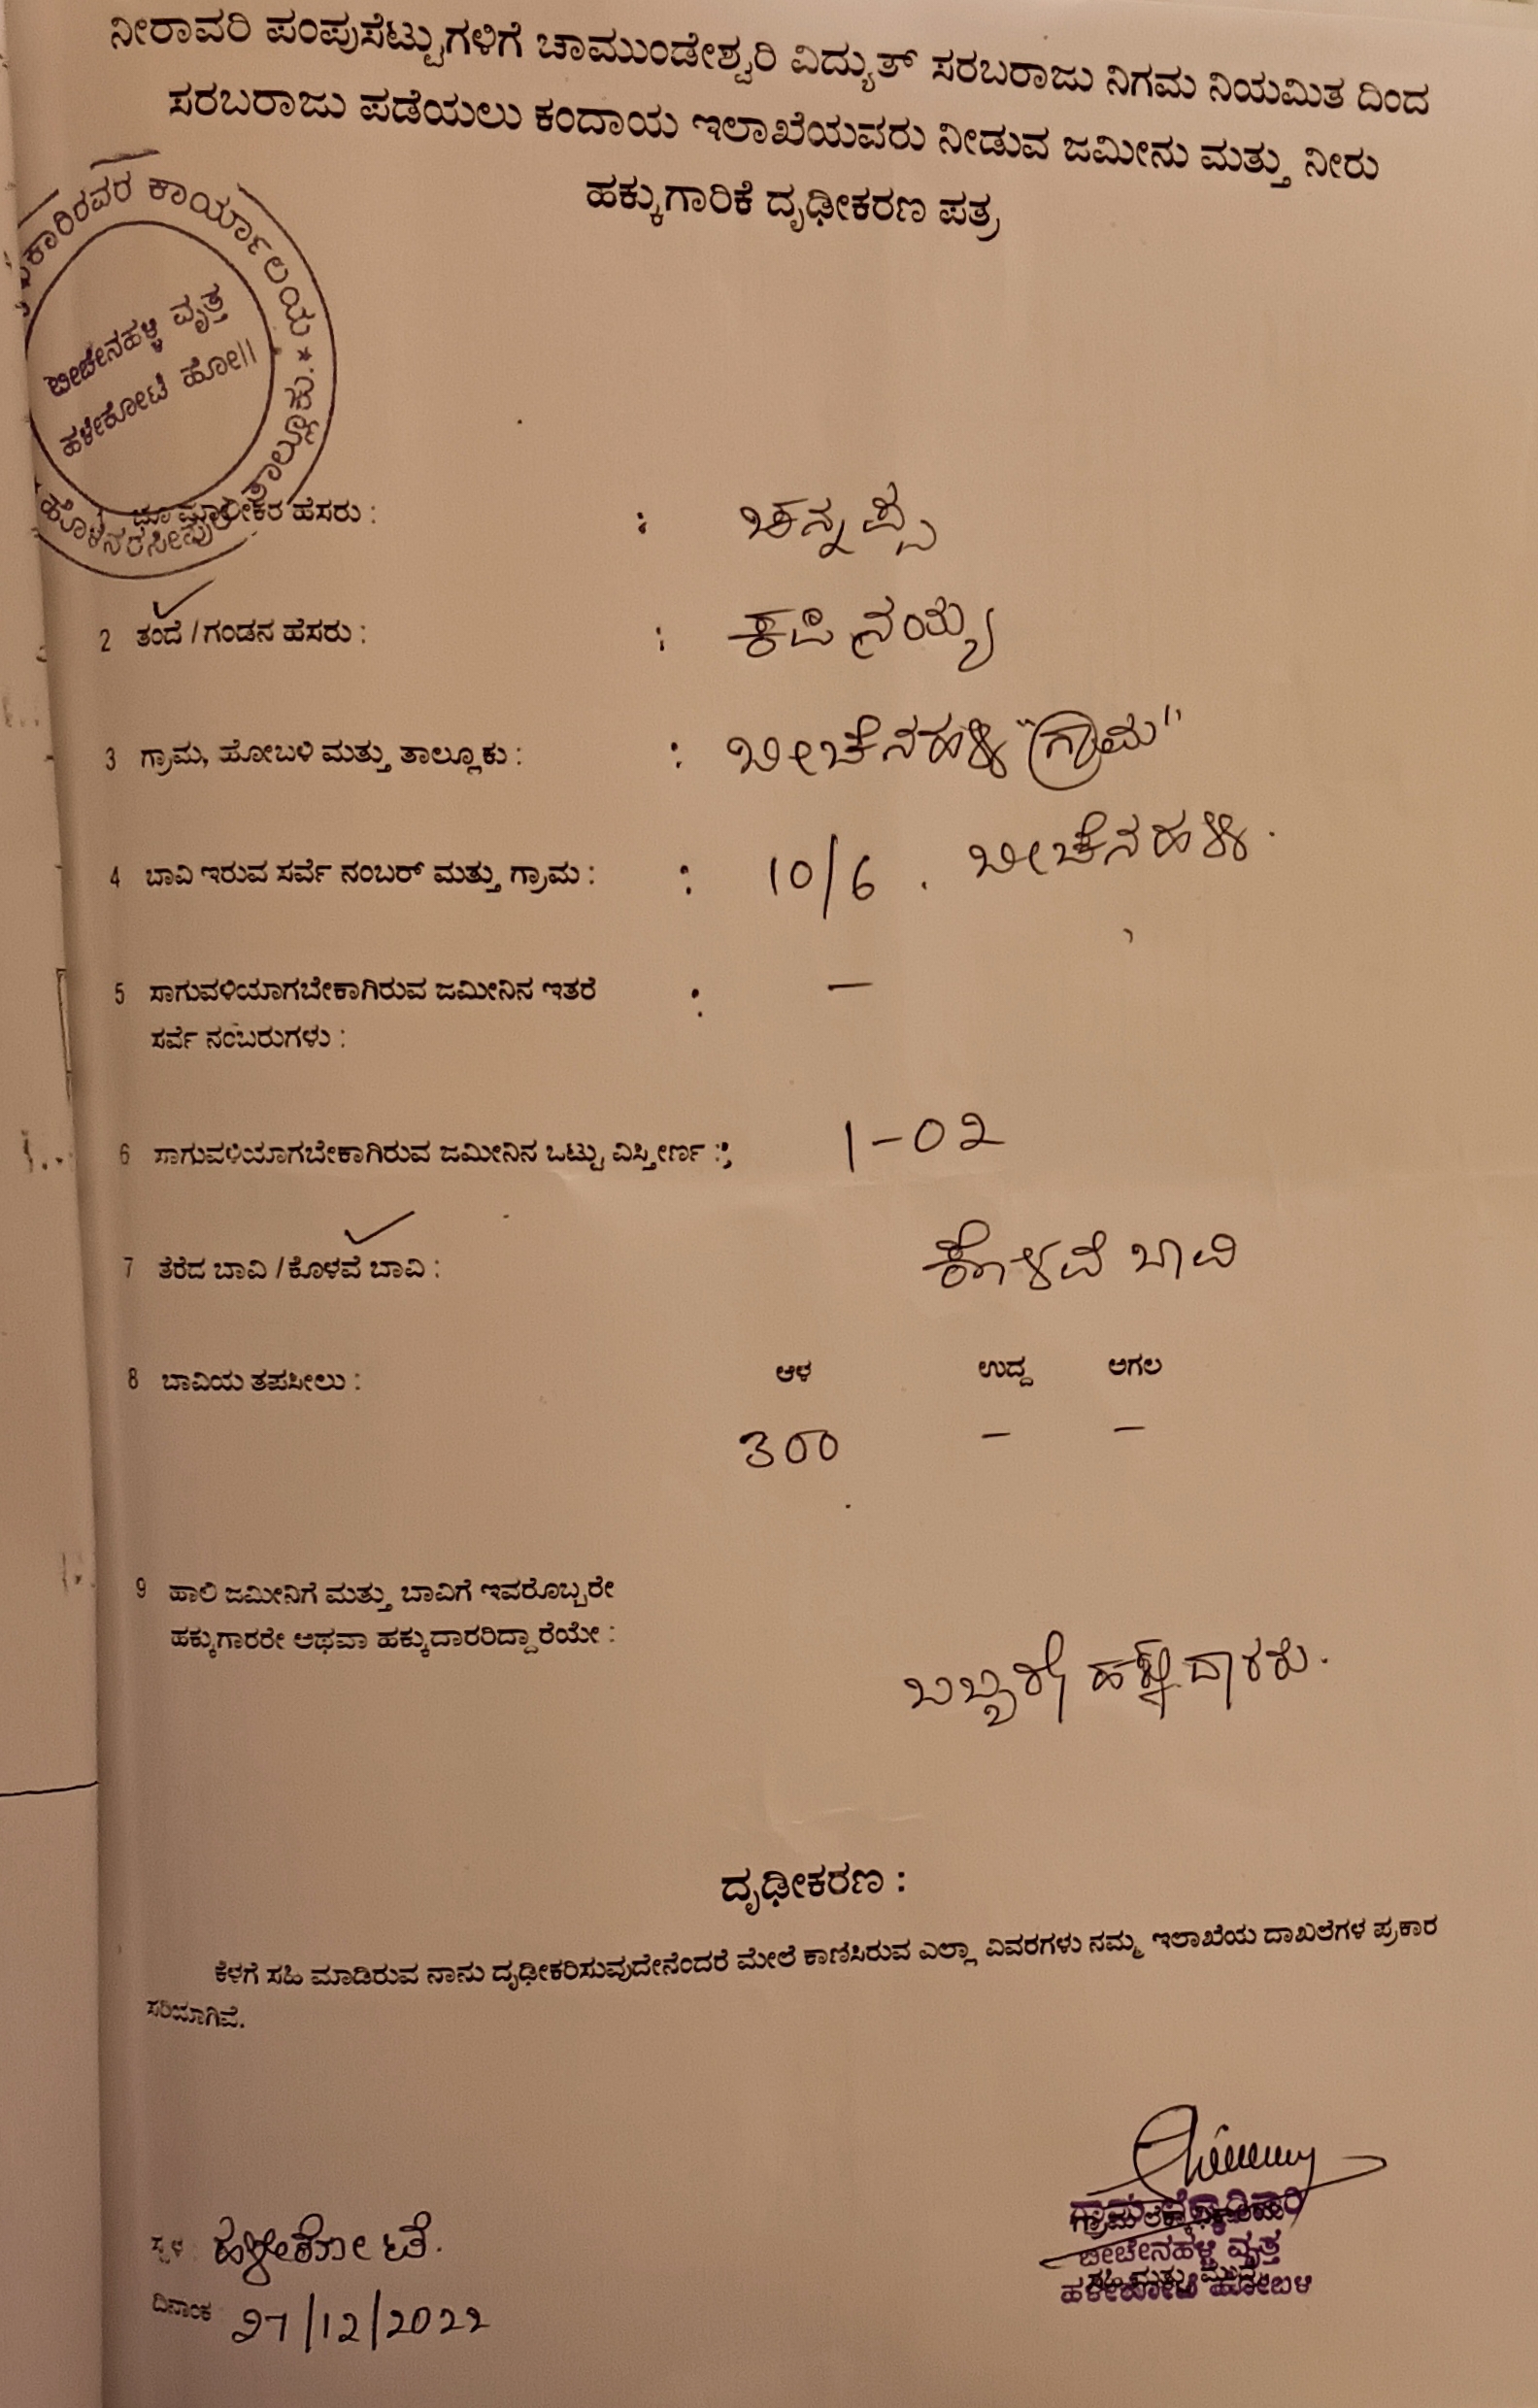 ನೀರಾವರಿ ಪಂಪುಸೆಟ್ಟುಗಳಿಗೆ ಚಾಮುಂಡೇಶ್ವರಿ ವಿದ್ಯುತ್ ಸರಬರಾಜು ನಿಗಮ ನಿಯಮಿತ ದಿಂದ
ಸರಬರಾಜು ಪಡೆಯಲು ಕಂದಾಯ ಇಲಾಖೆಯವರು ನೀಡುವ ಜಮೀನು ಮತ್ತು ನೀರು
ಹಕ್ಕುಗಾರಿಕೆ ದೃಢೀಕರಣ ಪತ್ರ
ಕಾರ್ಯಾಲಯ * ಹೊಳೆನರಸೀಪುರ ತಾಲ್ಲೂಕು.
ಬೀಚೇನಹಳ್ಳಿ ವೃತ್ತ
ಹಳೇಕೋಟೆ ಹೋ||
1 ಭೂ ಮಾಲೀಕರ ಹೆಸರು : : ಚನ್ನಪ್ಪ
2 ತಂದೆ / ಗಂಡನ ಹೆಸರು : : ಕಪಿನಯ್ಯ
3 ಗ್ರಾಮ, ಹೋಬಳಿ ಮತ್ತು ತಾಲ್ಲೂಕು : : ಬೀಚೆನಹಳ್ಳಿ "ಗ್ರಾಮ"
4 ಬಾವಿ ಇರುವ ಸರ್ವೆ ನಂಬರ್ ಮತ್ತು ಗ್ರಾಮ : : 10/6 . ಬೀಚೆನಹಳ್ಳಿ.
5 ಸಾಗುವಳಿಯಾಗಬೇಕಾಗಿರುವ ಜಮೀನಿನ ಇತರೆ : —
ಸರ್ವೆ ನಂಬರುಗಳು :
6 ಸಾಗುವಳಿಯಾಗಬೇಕಾಗಿರುವ ಜಮೀನಿನ ಒಟ್ಟು ವಿಸ್ತೀರ್ಣ : 1-02
7 ತೆರೆದ ಬಾವಿ / ಕೊಳವೆ ಬಾವಿ : ಕೊಳವೆ ಬಾವಿ
8 ಬಾವಿಯ ತಪಸೀಲು : ಆಳ ಉದ್ದ ಅಗಲ
300 — —
9 ಹಾಲಿ ಜಮೀನಿಗೆ ಮತ್ತು ಬಾವಿಗೆ ಇವರೊಬ್ಬರೇ
ಹಕ್ಕುಗಾರರೇ ಅಥವಾ ಹಕ್ಕುದಾರರಿದ್ದಾರೆಯೇ :
ಒಬ್ಬರೇ ಹಕ್ಕುದಾರರು.
ದೃಢೀಕರಣ :
ಕೆಳಗೆ ಸಹಿ ಮಾಡಿರುವ ನಾನು ದೃಢೀಕರಿಸುವುದೇನೆಂದರೆ ಮೇಲೆ ಕಾಣಿಸಿರುವ ಎಲ್ಲಾ ವಿವರಗಳು ನಮ್ಮ ಇಲಾಖೆಯ ದಾಖಲೆಗಳ ಪ್ರಕಾರ
ಸರಿಯಾಗಿವೆ.
ಬೀಚೇನಹಳ್ಳಿ ವೃತ್ತ
ಹಳೇಕೋಟೆ ಹೋಬಳಿ
ಸ್ಥಳ : ಹಳ್ಳೇಕೋಟೆ.
ದಿನಾಂಕ 27/12/2022